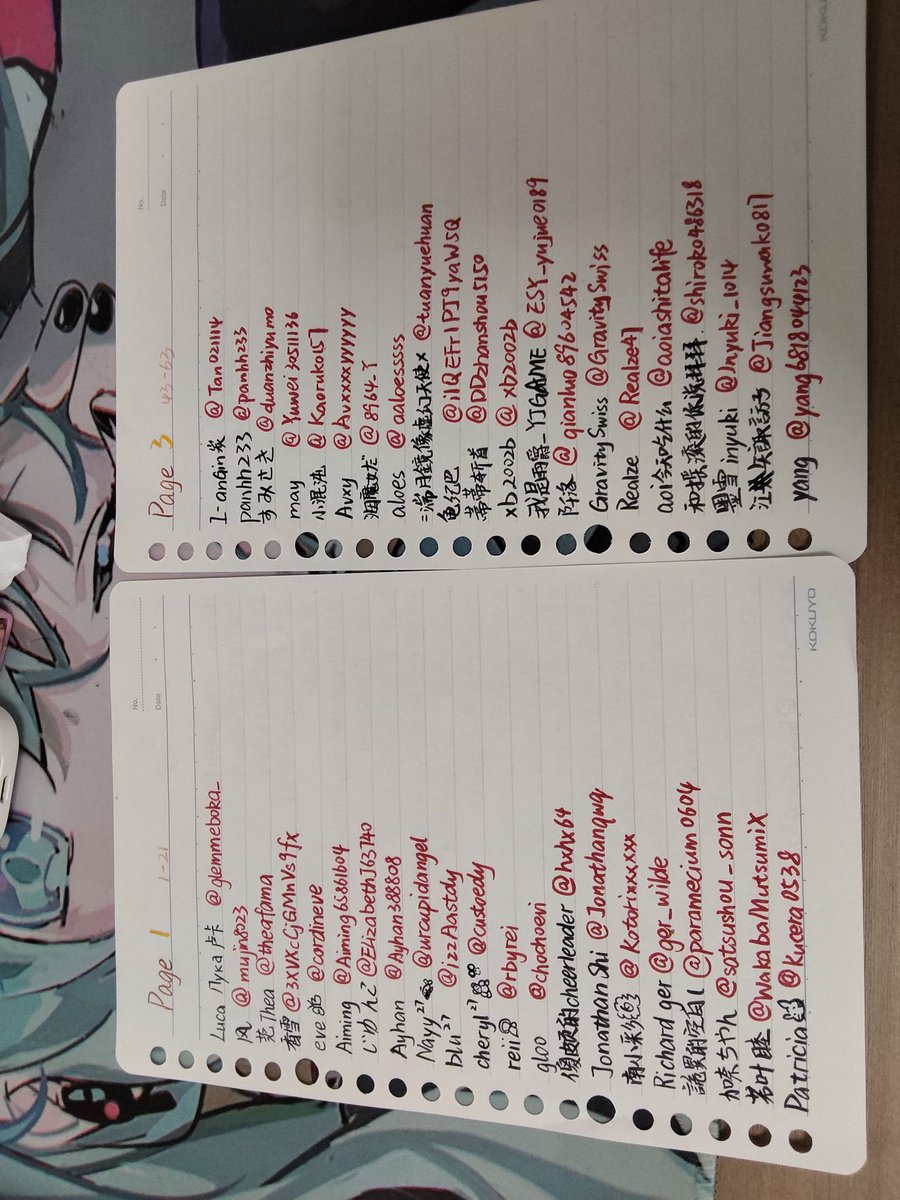 No.
Date
Page 1 1-21
Luca Лука 卢卡 @glemmeboka_
风 @mujin8023
芫Thea @thearfama
看雪 @3XVKcCjGMnVs9fx
eve @cordineve
Aiming @Aiming65361604
じゆんこ @ElizabethJ63740
Ayhan @Ayhan388808
Nayy²⁷ @uraupidangel
blu²⁷ @izzAastdy
cheryl²⁷ @custoedy
reii @rbyrei
gloo @chochoevi
傻 的cheerleader @hxhx64
Jonathan Shi @Jonathanqwq
南小采 @Kotorixxxxxx
Richard ger @ger_wilde
詭異的空白 @paramecium0604
加味ちやん @satsushou_sonn
若叶睦 @WakabaMutsumiX
Patricia @Kucera0538
KOKUYO
No.
Date
Page 3 43-63
I-anGin炭 @Tan021114
panhh233 @panhh23
すみさき @duanzhiyumo
may @Yuwei30511136
小混沌 @Kaoruko157
Avxy @Avxxxxyyyyyy
洇魔女だ @8964_Y
aloes @aaloesssss
=湍月鏡像虚幻天使× @tuanyuehuan
龟纪巴 @ilQEFrIPJ9yaW5Q
蒂蒂斩首 @DDzhanshou5150
xb2002b @xb2002b
我是雨爵_YJGAME @ESY_yujue0189
阡洛 @qianluo89604542
GravitySwiss @GravitySwiss
Realze @Realze47
aoi今天吃什么 @aoiashitalife
和 @shiroko486318
墨雪inyuki @Inyuki_1014
江 @Jiangsuwako817
yang @yang6818044123
KOKUYO